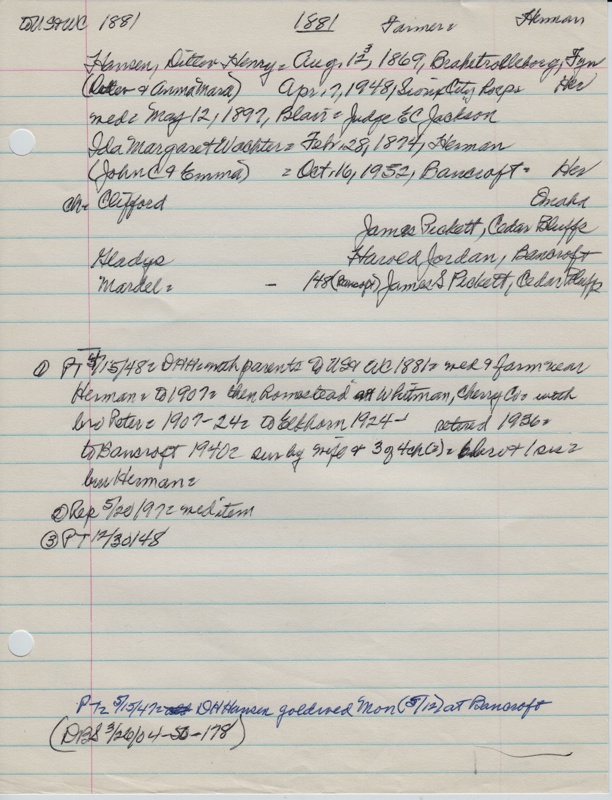 To USA & WC 1881   1881   Farmer=   Herman
Hansen, Ditlev Henry= Aug. 12, 1869, Brahetrolleborg, Fyn
(Ditlev & Anna Mara)   Apr. 7, 1948, Sioux City Rosps   Her
med= May 12, 1897, Blair= Judge E C Jackson
Ida Margaret Wachter= Feb. 28, 1874, Herman
(John C & Emma)   = Oct. 16, 1952, Bancroft=   Her
ch= Clifford   Omaha
James Pickett, Cedar Bluffs
Gladys   Harold Jordan, Bancroft
Mardel=   -   '48 (Bancroft) James S Pickett, Cedar Bluffs
① PT 4/15/48= DHH with parents to USA & WC 1881= med & farm near
Herman= to 1907= then homestead at Whitman, Cherry Co= with
bro Peter= 1907-24= to Elkhorn 1924- retired 1936=
to Bancroft 1940= sur by wife & 3 of 4 ch(2)= bro & 1 sis=
bur Herman=
② Rep 5/20/97= med item
③ PT 12/30/48
PT= 5/15/47= DH Hansen gold wed Mon (5/12) at Bancroft
(DBS 3/26/04-50-178)